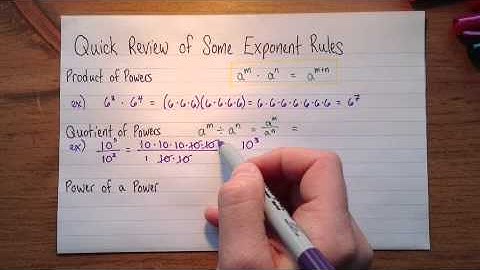 Quick Review of Some Exponent Rules
Product of Powers aᵐ · aⁿ = aᵐ⁺ⁿ
ex) 6³ · 6⁴ = (6·6·6)(6·6·6·6) = 6·6·6·6·6·6·6 = 6⁷
Quotient of Powers aᵐ ÷ aⁿ = aᵐ/aⁿ =
ex) 10⁵/10² = 10·10·10·10·10/1 10·10 10³
Power of a Power